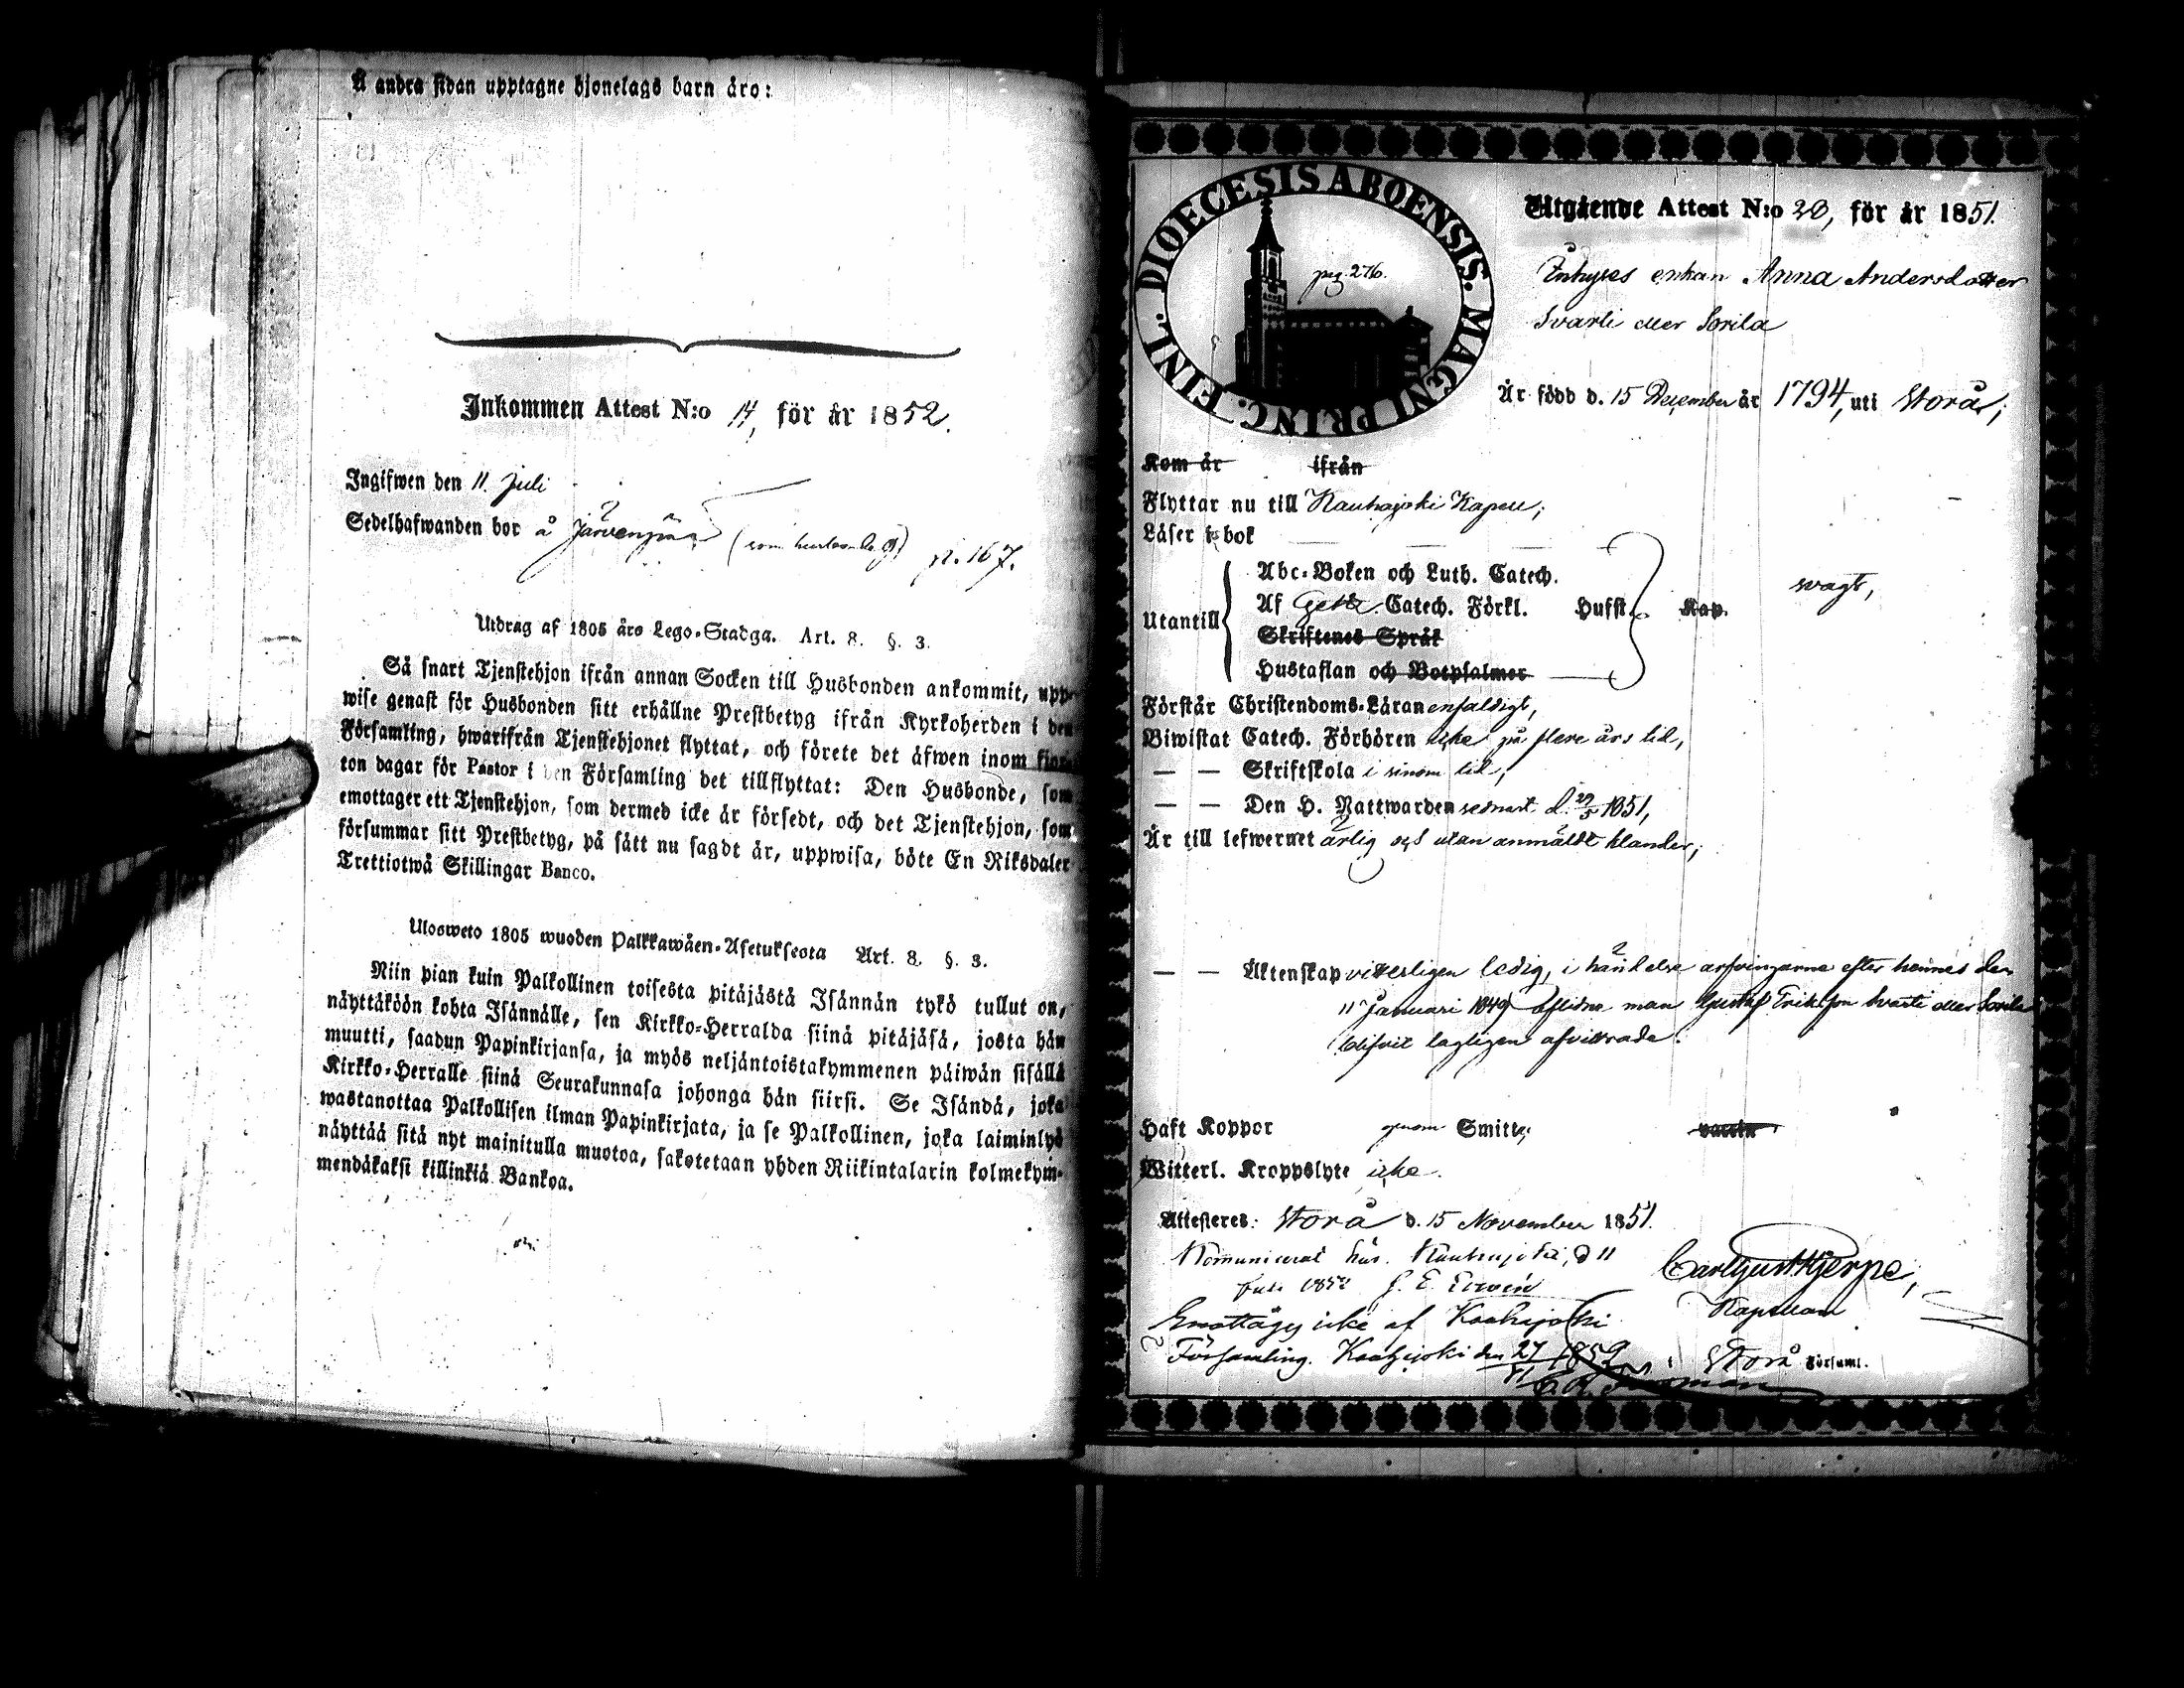 Å andra sidan upptagne hjonelags barn äro:
Inkommen Attest N:o 14, för år 1852.
Ingifwen den 11 Juli
Sedelhafwanden bor å Järvenpää p. 167.
Utdrag af 1805 års Lego-Stadga. Art. 8. §. 3.
Så snart Tjenstehjon ifrån annan Socken till Husbonden ankommit, upp-
wise genast för Husbonden sitt erhållne Prestbetyg ifrån Kyrkoherden i den
Församling, hwarifrån Tjenstehjonet flyttat, och förete det äfwen inom fjor-
ton dagar för Pastor i den Församling det tillflyttat: Den Husbonde, som
emottager ett Tjenstehjon, som dermed icke är försedt, och det Tjenstehjon, som
försummar sitt Prestbetyg, på sätt nu sagdt är, uppwisa, böte En Riksdaler
Trettiotwå Skillingar Banco.
Ulosweto 1805 wuoden Palkkawäen-Asetuksesta Art. 8. §. 3.
Niin pian kuin Palkollinen toisesta pitäjästä Isännän tykö tullut on,
näyttäköön kohta Isännälle, sen Kirkko-Herralda siinä pitäjäsä, josta hän
muutti, saadun Papinkirjansa, ja myös neljäntoistakymmenen päiwän sisällä
Kirkko-Herralle siinä Seurakunnasa johonga hän siirsi. Se Isändä, joka
wastanottaa Palkollisen ilman Papinkirjata, ja se Palkollinen, joka laiminlyö
näyttää sitä nyt mainitulla muotoa, sakotetaan yhden Riikintalarin kolmekym-
mendäkaksi killinkiä Bankoa.
DIOECESIS ABOENSIS. MAGNI PRINC. FINL.
pag. 276.
Utgående Attest N:o 20, för år 1851.
Inhyses enkan Anna Andersdotter
Svarti eller Sorila
Är född d. 15 December år 1794, uti Storå;
Kom år ifrån
Flyttar nu till Kauhajoki Kapell;
Läser i bok
Utantill
Abc-Boken och Luth. Catech.
Af Catech. Förkl. Hufst. Kap. svagt,
Skriftenes Språk
Hustaflan och Botpsalmer
Förstår Christendoms-Läran enfaldigt,
Biwistat Catech. Förhören icke på flere års tid,
— — Skriftskola i sinom tid,
— — Den H. Nattwarden sednast d. 1851,
Är till lefwernet ärlig och utan anmäldt klander;
— — Äktenskap vitterligen ledig, i händelse arfvingarne efter hennes den
11 Januari 1849 aflidne man Gustaf Eriksson Svarti eller Sorila
blifvit lagligen afvittrade.
Haft Koppor genom Smitta; vaccin
Witterl. Kroppslyte icke.
Attesteres: Storå d. 15 November 1851.
Kommunicerat här. Kauhajoki, d 11
Juli 1852
Carl Gust Hjerpe,
Kapellan
Emottages icke af Kauhajoki
Församling. Kauhajoki den 27
i Storå Församl.